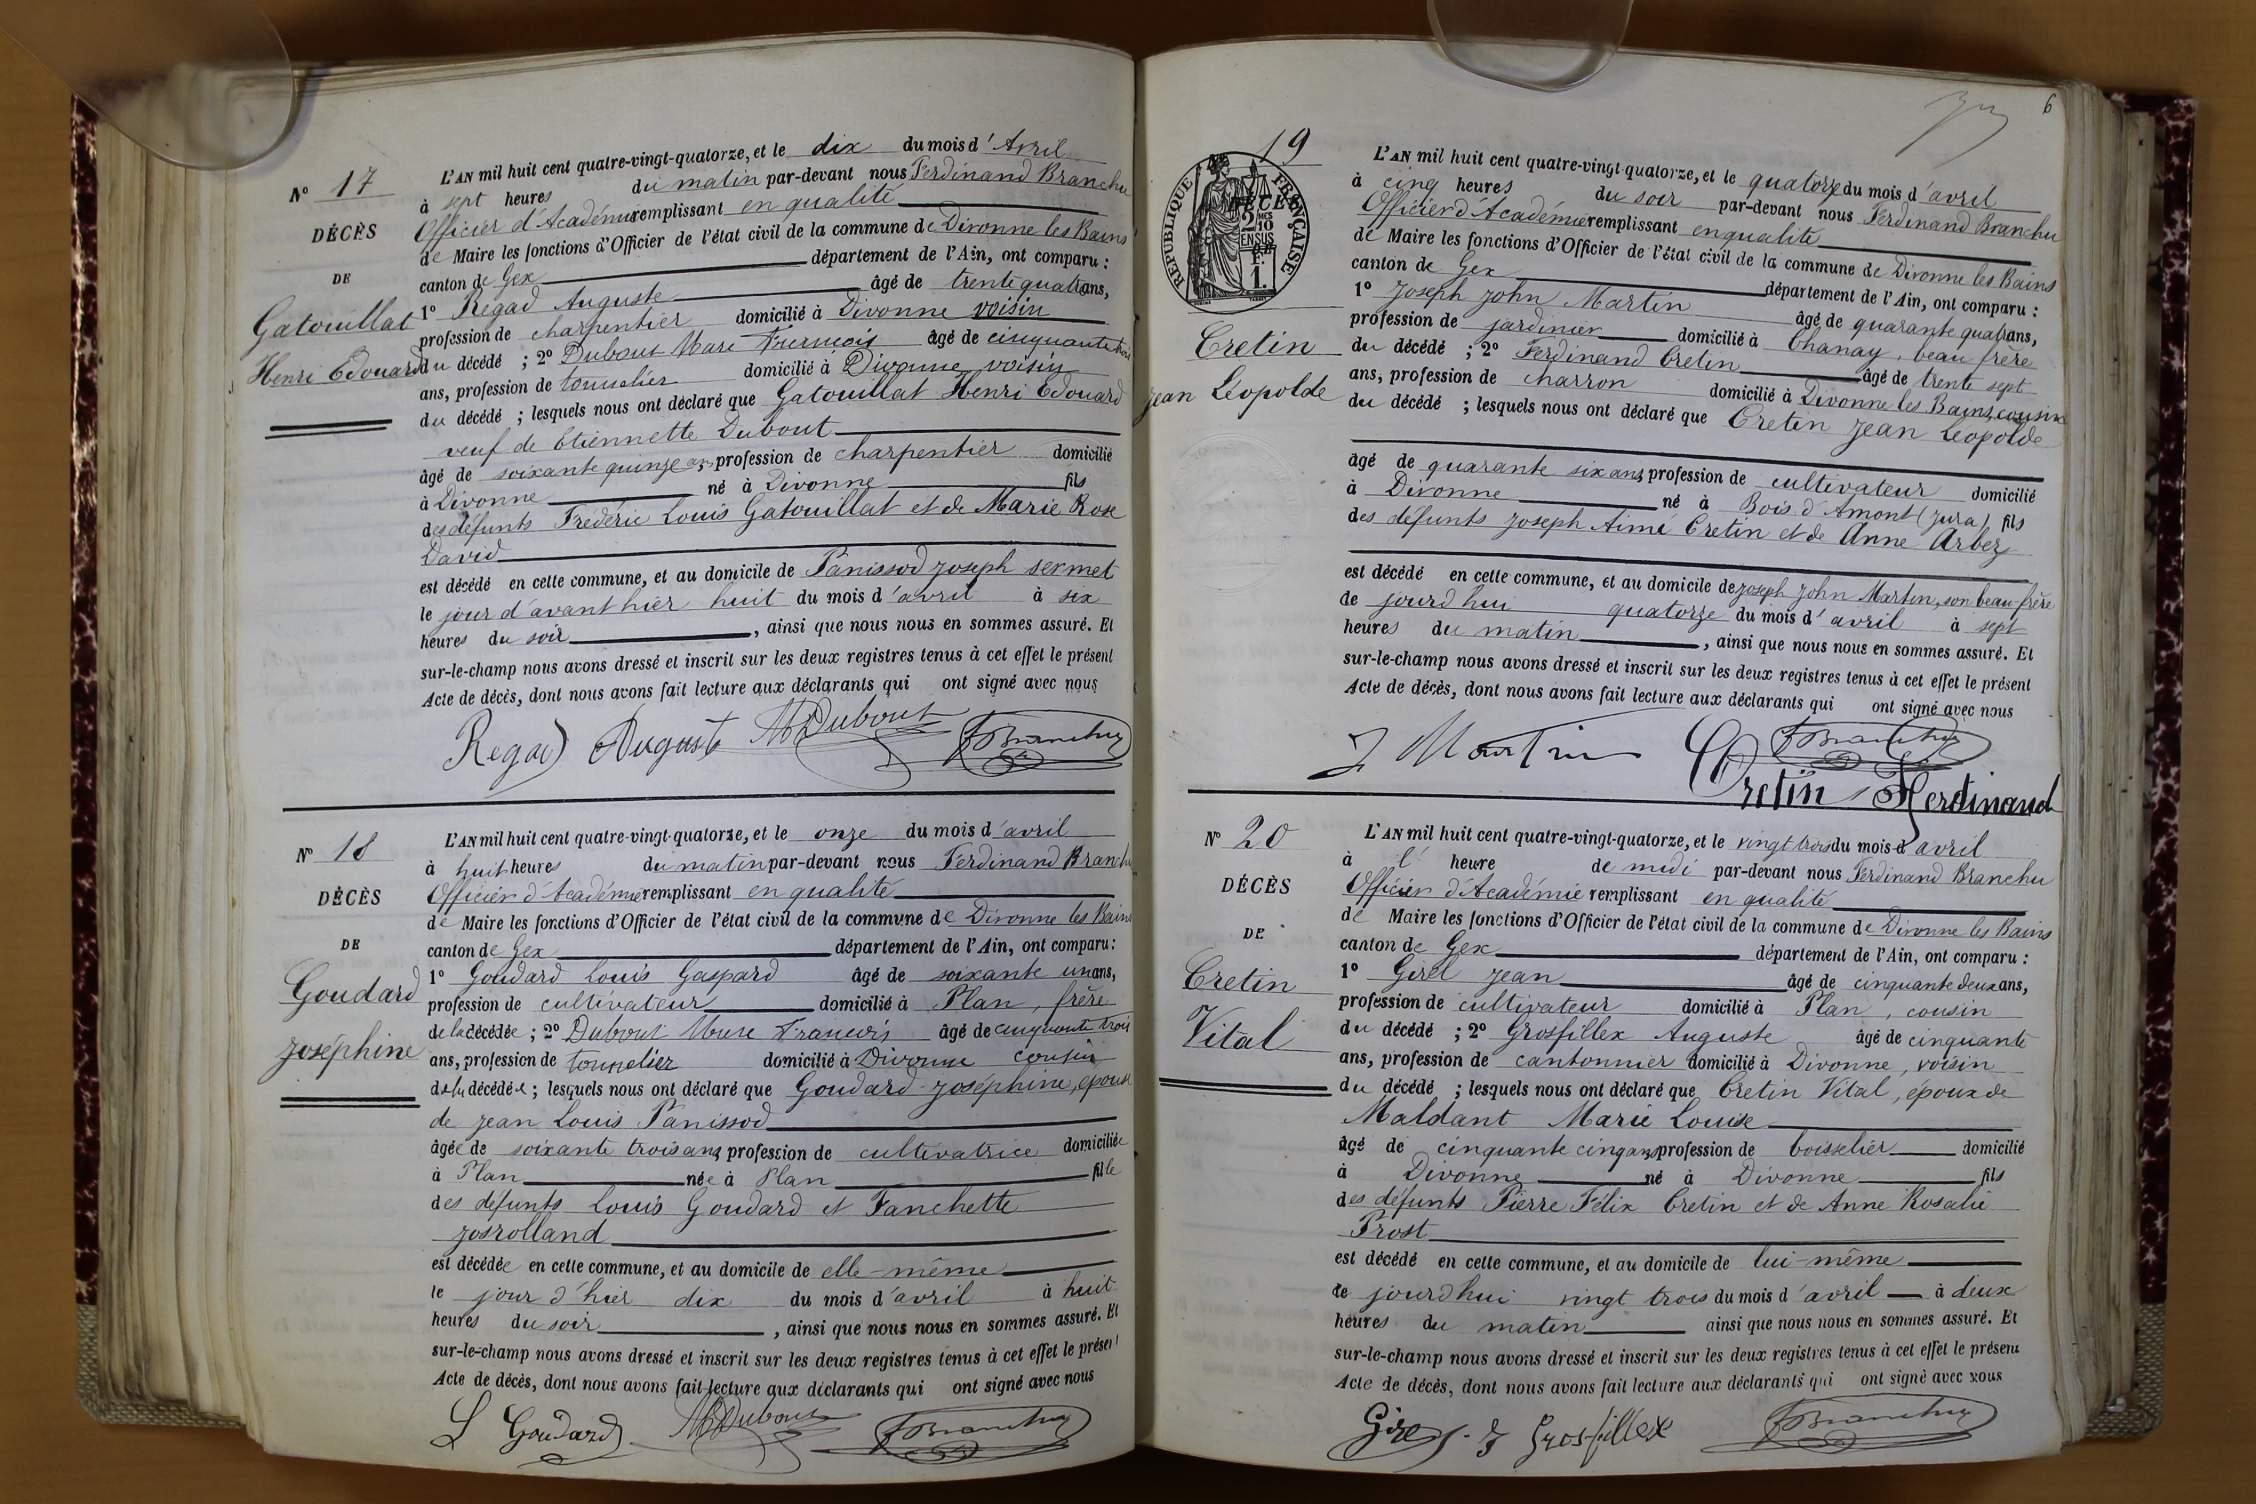 N° 17
DÉCÈS
DE
Gatouillat
Henri Edouard
L'AN mil huit cent quatre-vingt-quatorze, et le dix du mois d'Avril
à sept heures du matin par-devant nous Ferdinand Branchu
Officier d'Académie remplissant en qualité
de Maire les fonctions d'Officier de l'état civil de la commune de Divonne les Bains
canton de Gex département de l'Ain, ont comparu :
1° Regad Auguste âgé de trente quatre ans,
profession de charpentier domicilié à Divonne voisin
du décédé ; 2° Dubout Marc François âgé de cinquante trois
ans, profession de tonnelier domicilié à Divonne voisin
du décédé ; lesquels nous ont déclaré que Gatouillat Henri Edouard
veuf de Etiennette Dubout
âgé de soixante quinze ans, profession de charpentier domicilié
à Divonne né à Divonne fils
des défunts Frédéric Louis Gatouillat et de Marie Rose
David
est décédé en cette commune, et au domicile de Panissod Joseph sermet
le jour d'avant hier huit du mois d'avril à six
heures du soir, ainsi que nous nous en sommes assuré. Et
sur-le-champ nous avons dressé et inscrit sur les deux registres tenus à cet effet le présent
Acte de décès, dont nous avons fait lecture aux déclarants qui ont signé avec nous
Regad August MDubout FBranchu
N° 18
DÉCÈS
DE
Goudard
Joséphine
L'AN mil huit cent quatre-vingt-quatorze, et le onze du mois d'avril
à huit heures du matin par-devant nous Ferdinand Branchu
Officier d'Académie remplissant en qualité
de Maire les fonctions d'Officier de l'état civil de la commune de Divonne les Bains
canton de Gex département de l'Ain, ont comparu :
1° Goudard Louis Gaspard âgé de soixante un ans,
profession de cultivateur domicilié à Plan, frère
de la décédée ; 2° Dubout Marc François âgé de cinquante trois
ans, profession de tonnelier domicilié à Divonne cousin
de la décédée ; lesquels nous ont déclaré que Goudard Joséphine, épouse
de Jean Louis Panissod
âgée de soixante trois ans, profession de cultivatrice domiciliée
à Plan née à Plan fille
des défunts Louis Goudard et Fanchette
Josrolland
est décédée en cette commune, et au domicile de elle-même
le jour d'hier dix du mois d'avril à huit
heures du soir, ainsi que nous nous en sommes assuré. Et
sur-le-champ nous avons dressé et inscrit sur les deux registres tenus à cet effet le présent
Acte de décès, dont nous avons fait lecture aux déclarants qui ont signé avec nous
L Goudard MDubout FBranchu
6
19
RÉPUBLIQUE FRANÇAISE
DÉCÈS
2 MES
10
EN SUS
DE
1F.
Cretin
Jean Léopolde
L'AN mil huit cent quatre-vingt-quatorze, et le quatorze du mois d'avril
à cinq heures du soir par-devant nous Ferdinand Branchu
Officier d'Académie remplissant en qualité
de Maire les fonctions d'Officier de l'état civil de la commune de Divonne les Bains
canton de Gex département de l'Ain, ont comparu :
1° Joseph John Martin âgé de quarante quatre ans,
profession de jardinier domicilié à Chanay, beau frère
du décédé ; 2° Ferdinand Cretin âgé de trente sept
ans, profession de charron domicilié à Divonne les Bains, cousin
du décédé ; lesquels nous ont déclaré que Cretin Jean Léopolde
âgé de quarante six ans, profession de cultivateur domicilié
à Divonne né à Bois d'Amont (Jura) fils
des défunts Joseph Aimé Cretin et de Anne Arbez
est décédé en cette commune, et au domicile de Joseph John Martin, son beau-frère
de jourd'hui quatorze du mois d'avril à sept
heures du matin, ainsi que nous nous en sommes assuré. Et
sur-le-champ nous avons dressé et inscrit sur les deux registres tenus à cet effet le présent
Acte de décès, dont nous avons fait lecture aux déclarants qui ont signé avec nous
J Martin FBranchu
Cretin Ferdinand
N° 20
DÉCÈS
DE
Cretin
Vital
L'AN mil huit cent quatre-vingt-quatorze, et le vingt trois du mois d'avril
à l' heure de midi par-devant nous Ferdinand Branchu
Officier d'Académie remplissant en qualité
de Maire les fonctions d'Officier de l'état civil de la commune de Divonne les Bains
canton de Gex département de l'Ain, ont comparu :
1° Girel Jean âgé de cinquante deux ans,
profession de cultivateur domicilié à Plan, cousin
du décédé ; 2° Grosfillex Auguste âgé de cinquante
ans, profession de cantonnier domicilié à Divonne, voisin
du décédé ; lesquels nous ont déclaré que Cretin Vital, époux de
Maldant Marie Louise
âgé de cinquante cinq ans, profession de boisselier domicilié
à Divonne né à Divonne fils
des défunts Pierre Félix Cretin et de Anne Rosalie
Prost
est décédé en cette commune, et au domicile de lui-même
de jourd'hui vingt trois du mois d'avril à deux
heures du matin ainsi que nous nous en sommes assuré. Et
sur-le-champ nous avons dressé et inscrit sur les deux registres tenus à cet effet le présent
Acte de décès, dont nous avons fait lecture aux déclarants qui ont signé avec nous
Girel J Grosfillex FBranchu